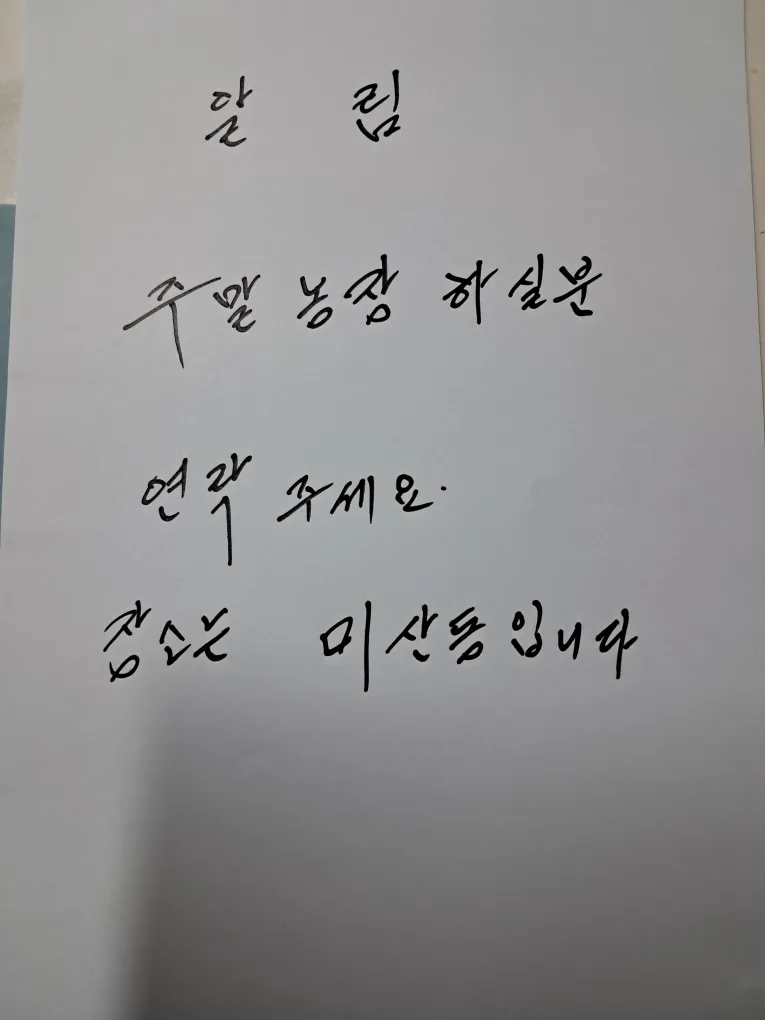 알 림
주말 농장 하실분
연락 주세요.
장소는 미산동입니다